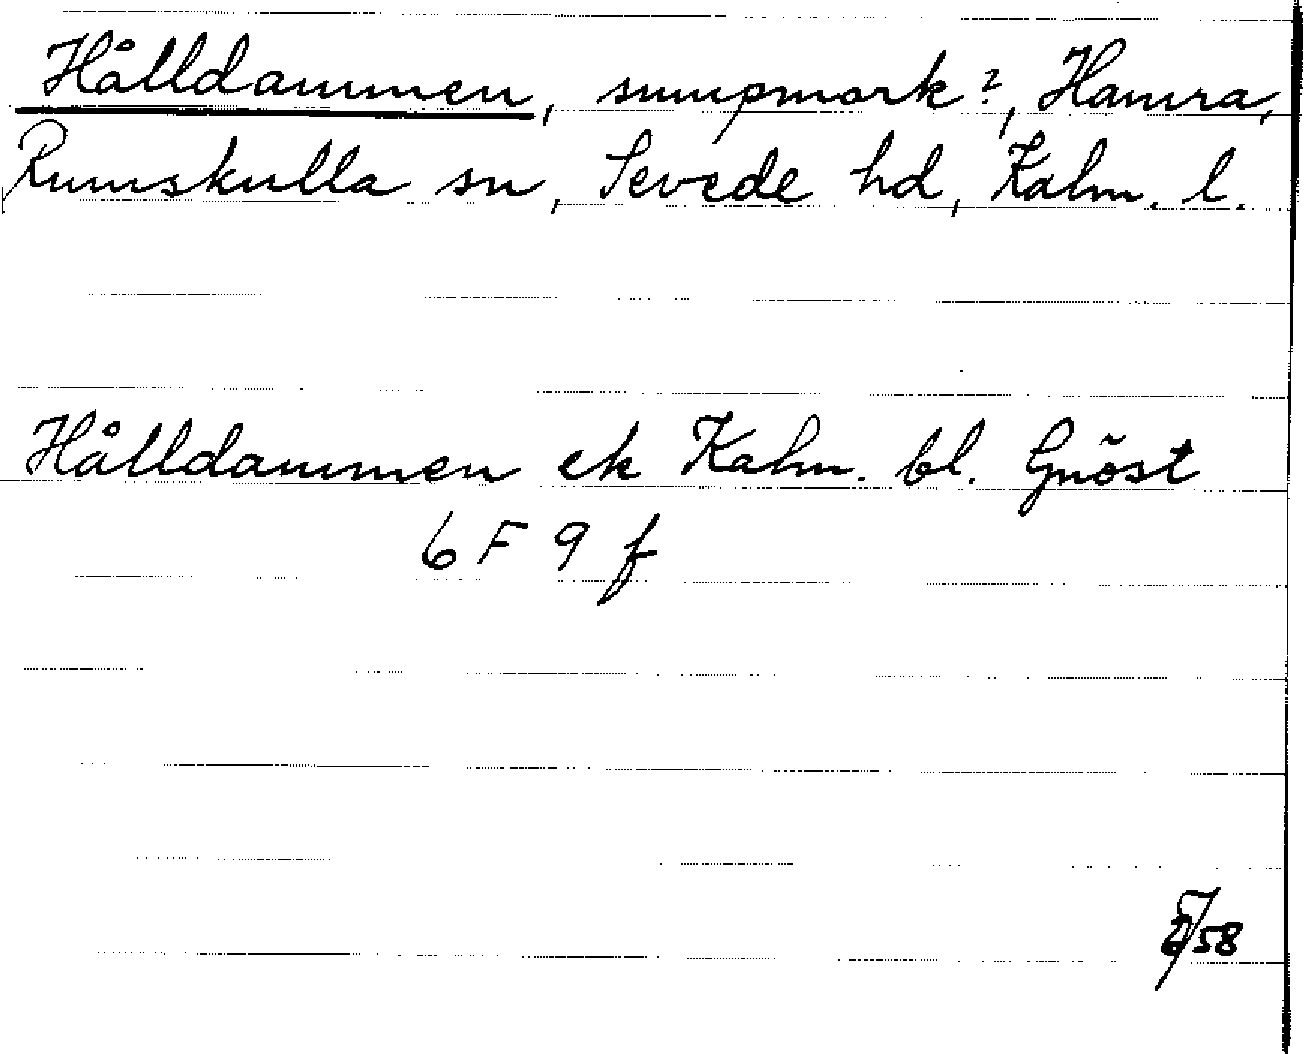 Hålldammen, sumpmark?, Hamra,
Rumskulla sn, Sevede hd, Kalm. l.
Hålldammen ek Kalm. bl. Gnöst
6 F 9 f